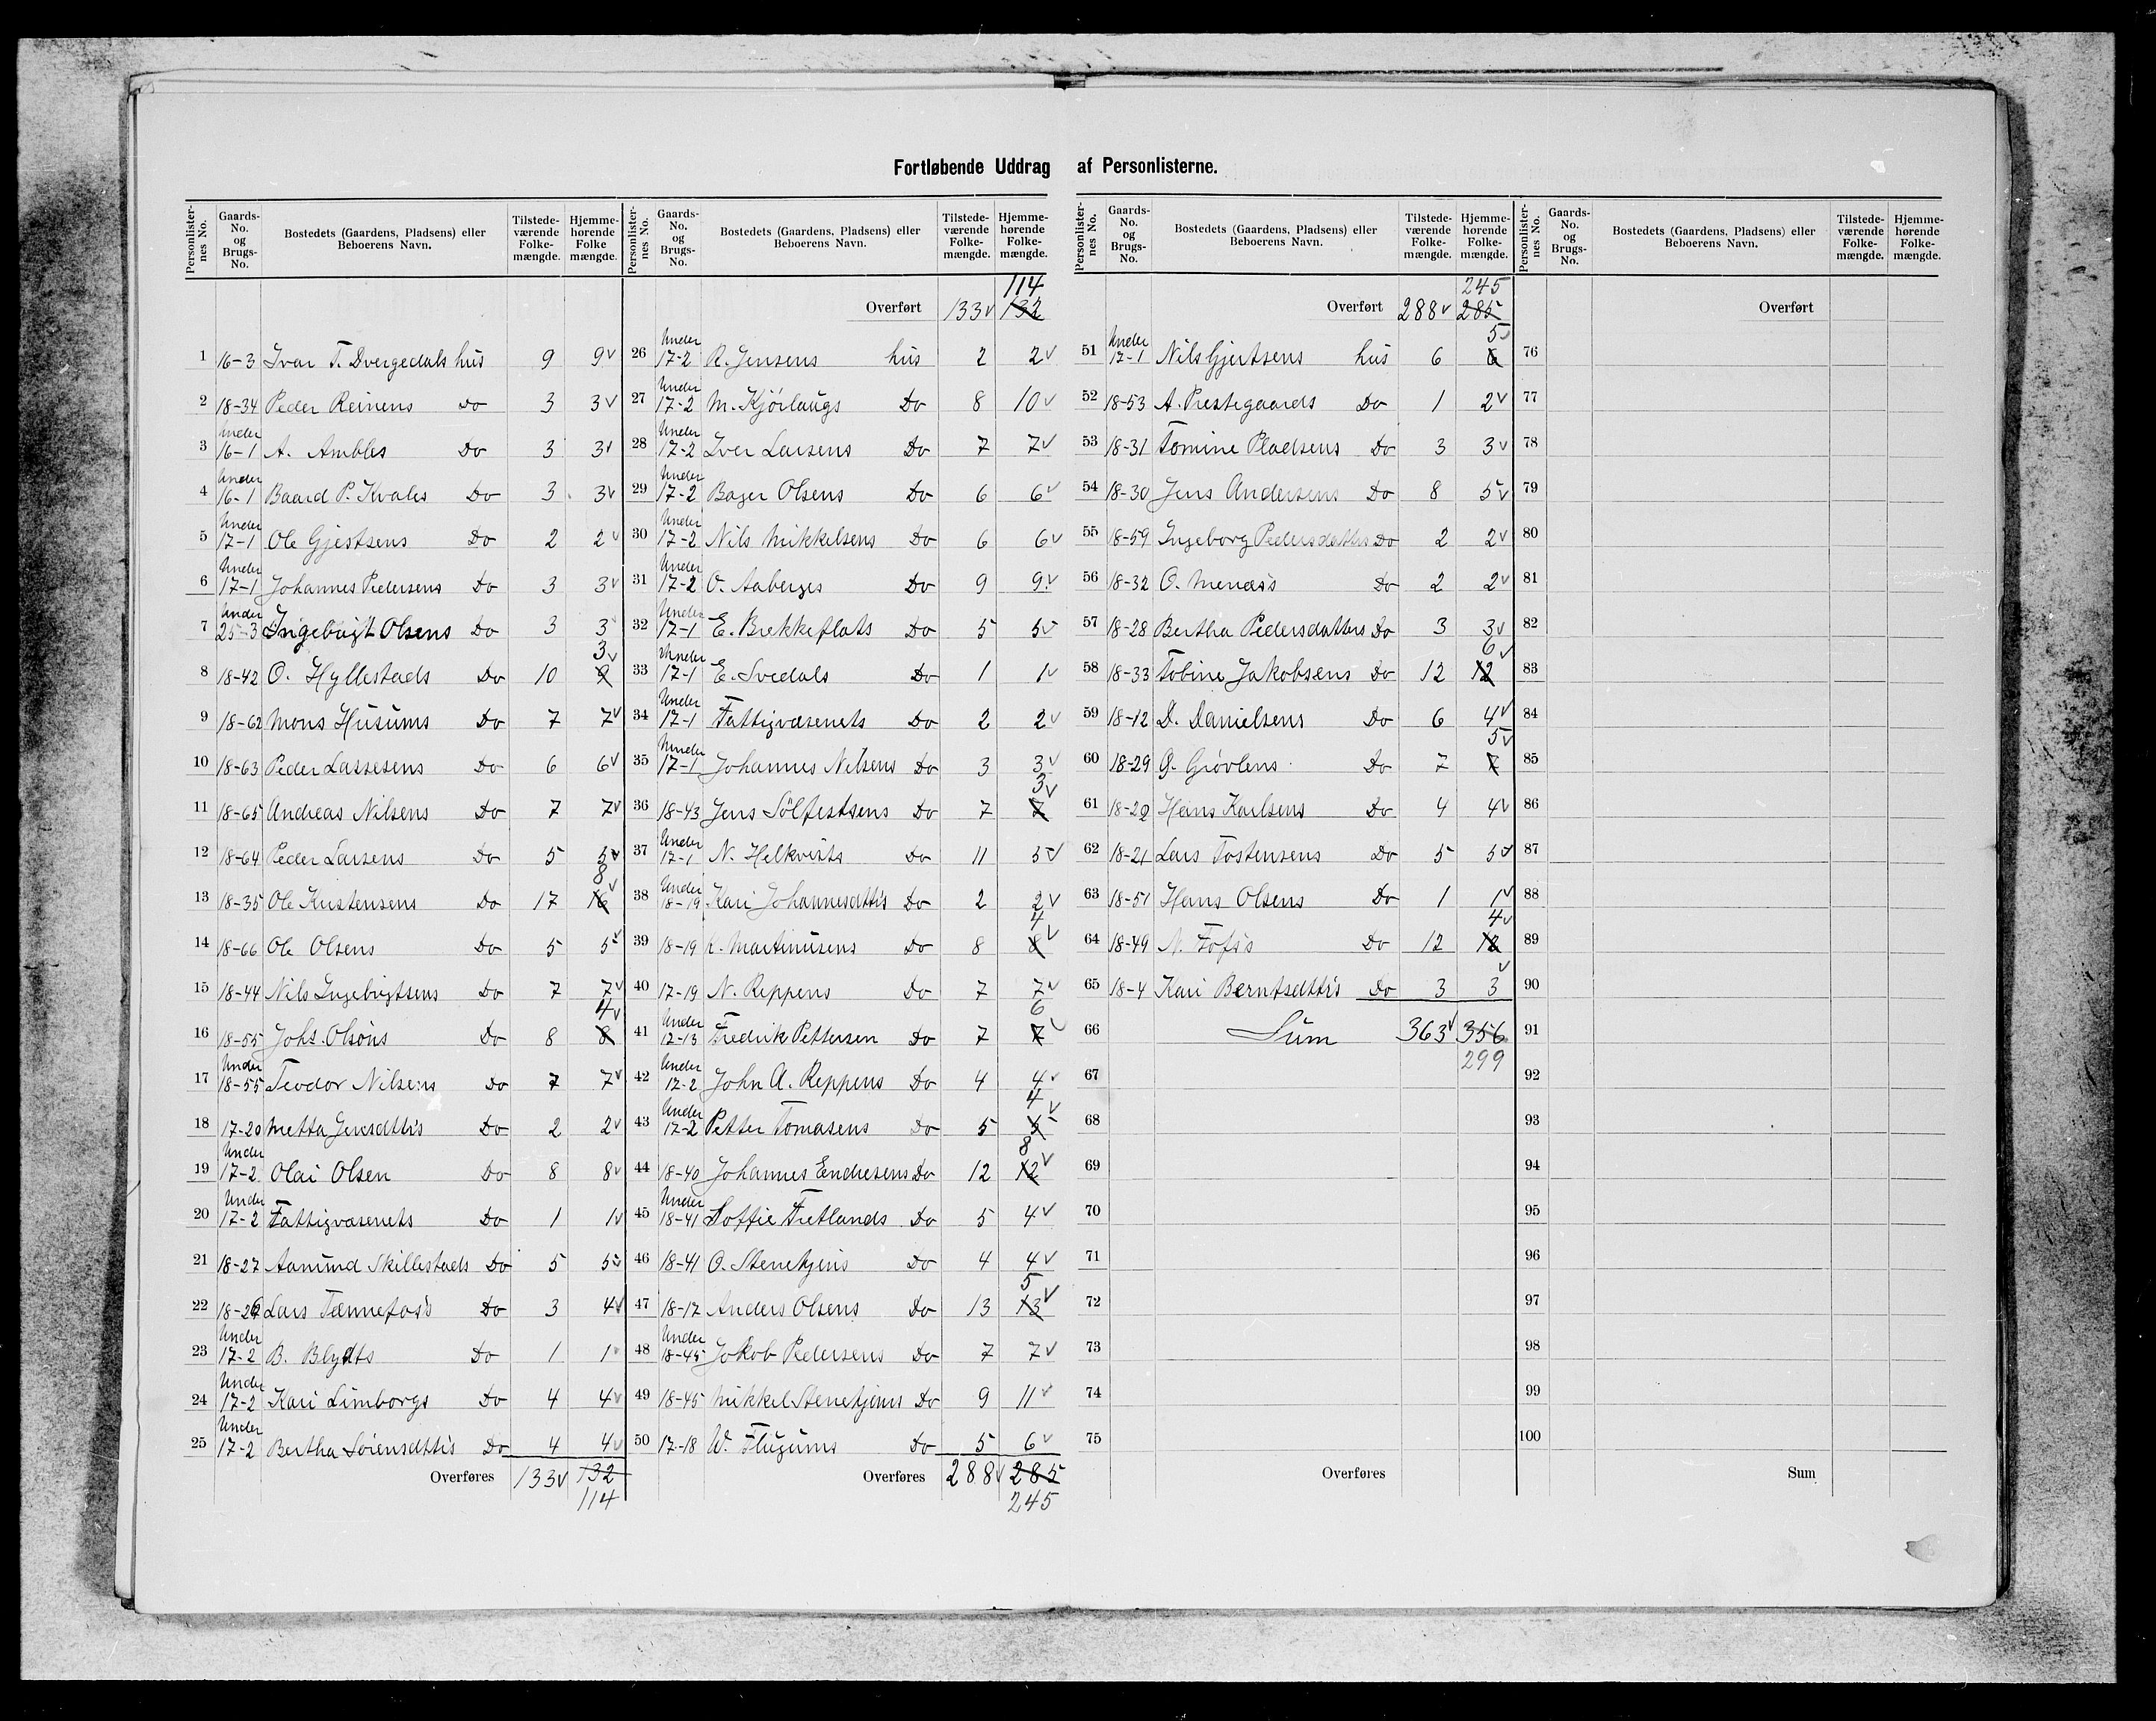 Fortløbende Uddrag af Personlisterne.
Personlisternes No. Gaards-No. og Brugs-No. Bostedets (Gaardens, Pladsens) eller Beboerens Navn. Tilstedeværende Folkemængde. Hjemmehørende Folkemængde.
1 16-3 Ivar T. Dvergedals hus 9 9v
2 18-34 Peder Reinens Do 3 3v
3 Under 16-1 A. Ambles Do 3 3v
4 Under 16-1 Baard P. Kvales Do 3 3v
5 Under 17-1 Ole Gjestsens Do 2 2v
6 Under 17-1 Johannes Pedersens Do 3 3v
7 Under 25-3 Ingebrigt Olsens Do 3 3v
8 18-42 O. Hyllestads Do 10 9 3v
9 18-62 Mons Husums Do 7 7v
10 18-63 Peder Lassesens Do 6 6v
11 18-65 Andreas Nilsens Do 7 7v
12 18-64 Peder Larsens Do 5 5v
13 18-35 Ole Kristensens Do 17 16 8v
14 18-66 Ole Olsens Do 5 5v
15 18-44 Nils Ingebrigtsens Do 7 7v
16 18-55 Johs. Olsøns Do 8 8 4v
17 Under 18-55 Teodor Nilsens Do 7 7v
18 17-20 Metta Jensdttrs Do 2 2v
19 Under 17-2 Olai Olsen Do 8 8v
20 Under 17-2 Fattigvæsenets Do 1 1v
21 18-27 Aamund Skillestads Do 5 5v
22 Lars Tænnefos's Do 3 4v
23 Under 17-2 B. Blydts Do 1 1v
24 Under 17-2 Kari Limborgs Do 4 4v
25 Under 17-2 Bertha Sørensdttrs Do 4 4v
Overføres 133v 132 114
Overført 133v 132 114
26 Under 17-2 R. Jensens hus 2 2v
27 Under 17-2 M. Kjørlaugs Do 8 10v
28 Under 17-2 Iver Larsens Do 7 7v
29 Under 17-2 Bøger Olsens Do 6 6v
30 Under 17-2 Nils Mikkelsens Do 6 6v
31 Under 17-2 O. Aaberges Do 9 9v
32 Under 17-1 E. Brekkeflats Do 5 5v
33 Under 17-1 E. Svedals Do 1 1v
34 Under 17-1 Fattigvæsenets Do 2 2v
35 Under 17-1 Johannes Nilsens Do 3 3v
36 18-43 Jens Sølfestsens Do 7 7 3v
37 Under 17-1 N. Helkvists Do 11 5v
38 Under 18-19 Kari Johannesdttrs Do 2 2v
39 18-19 Martinusens Do 8 8 4v
40 17-19 N. Reppens Do 7 7v
41 Under 17-13 Fredrik Pettersen Do 7 7 6v
42 Under 17-2 John A. Reppens Do 4 4v
43 Under 17-2 Petter Tomasens Do 5 5 4v
44 18-40 Johannes Endresens Do 12 12 8v
45 Under 18-41 Soffie Fretlands Do 5 4v
46 18-41 O. Stenehjems Do 4 4v
47 18-17 Anders Olsens Do 13 13 5v
48 Under 18-45 Jokob Pedersens Do 7 7v
49 18-45 Mikkel Stenehjems Do 9 11v
50 17-18 W. Flugums Do 5 6v
Overføres 288v 285 245
Overført 288v 285 245
51 Under 17-1 Nils Gjertsens hus 6 6 5v
52 18-53 A. Prestegaards Do 1 2v
53 18-31 Tomine Pladsens Do 3 3v
54 18-30 Jens Andersens Do 8 5v
55 18-59 Ingeborg Pedersdatters Do 2 2v
56 18-32 O. Menæs's Do 2 2v
57 18-28 Bertha Pedersdatters Do 3 3v
58 18-33 Tobine Jakobsens Do 12 12 6v
59 18-12 D. Danielsens Do 6 4v
60 18-29 G. Grøvlens Do 7 7 5v
61 Hans Karlsens Do 4 4v
62 18-21 Lars Tostensens Do 5 5v
63 18-51 Hans Olsens Do 1 1v
64 18-49 N. Fofs's Do 12 12 4v
65 18-4 Kari Berntsdttrs Do 3 3v
66 Sum 363v 356 299
67
68
69
70
71
72
73
74
75
Overføres
Overført
76
77
78
79
80
81
82
83
84
85
86
87
88
89
90
91
92
93
94
95
96
97
98
99
100
Sum